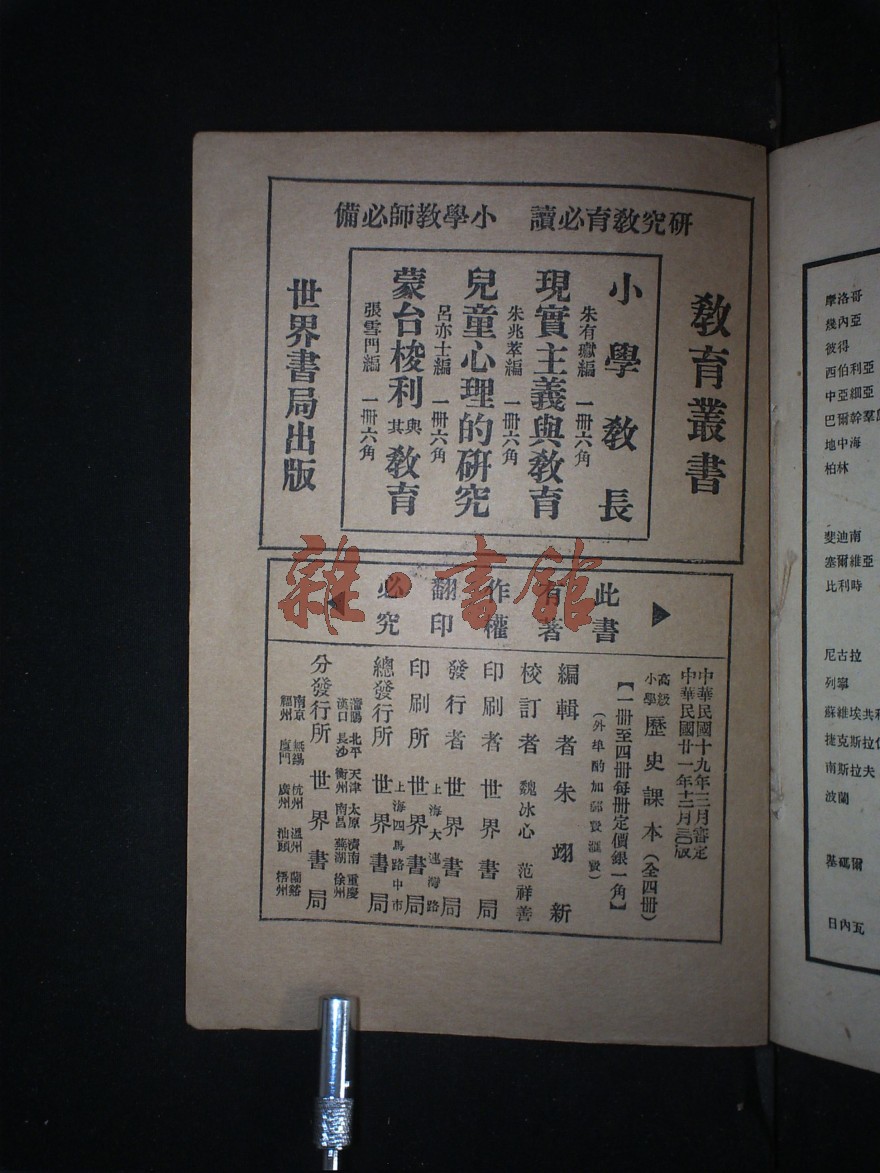 研究教育必讀　小學教師必備
教育叢書
小學教長
朱有瓛編　一冊六角
現實主義與教育
朱兆萃編　一冊六角
兒童心理的研究
呂亦士編　一冊六角
蒙台梭利與其教育
張雪門編　一冊六角
世界書局出版
此書有著作權翻印必究
中華民國十九年三月審定
中華民國廿一年十二月三〇版
高級小學歷史課本（全四冊）
【一冊至四冊每冊定價銀一角】
（外埠酌加郵費滙費）
編輯者　朱翊新
校訂者　魏冰心　范祥善
印刷者　世界書局
發行者　世界書局
上海大連灣路
印刷所　世界書局
上海四馬路中市
總發行所　世界書局
瀋陽　北平　天津　太原　濟南　重慶
漢口　長沙　衡州　南昌　蕪湖　徐州
分發行所　世界書局
南京　無錫　杭州　溫州　蘭谿
福州　廈門　廣州　汕頭　梧州
雜·書館
摩洛哥
幾內亞
彼得
西伯利亞
中亞細亞
巴爾幹羣
地中海
柏林
斐迪南
塞爾維亞
比利時
尼古拉
列寧
蘇維埃共和
捷克斯拉
南斯拉夫
波蘭
基碼爾
日內瓦